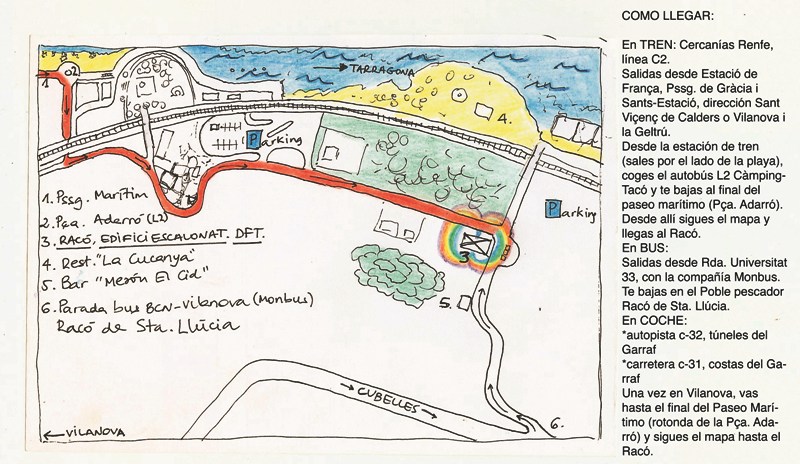 TARRAGONA
1
2
4.
Parking
Parking
1. Pssg. Marítim
2. Pça. Adarró (L2)
3. RACÓ, EDIFICI ESCALONAT. DFT.
4. Rest. "La Cucanya"
5. Bar "Mesón El Cid"
6. Parada bus BCN-Vilanova (Monbus)
Racó de Sta. Llúcia
3
5.
CUBELLES
6.
VILANOVA
COMO LLEGAR:
En TREN: Cercanías Renfe,
línea C2.
Salidas desde Estació de
França, Pssg. de Gràcia i
Sants-Estació, dirección Sant
Viçenç de Calders o Vilanova i
la Geltrú.
Desde la estación de tren
(sales por el lado de la playa),
coges el autobús L2 Càmping-
Tacó y te bajas al final del
paseo marítimo (Pça. Adarró).
Desde allí sigues el mapa y
llegas al Racó.
En BUS:
Salidas desde Rda. Universitat
33, con la compañía Monbus.
Te bajas en el Poble pescador
Racó de Sta. Llúcia.
En COCHE:
*autopista c-32, túneles del
Garraf
*carretera c-31, costas del Ga-
rraf
Una vez en Vilanova, vas
hasta el final del Paseo Marí-
timo (rotonda de la Pça. Ada-
rró) y sigues el mapa hasta el
Racó.